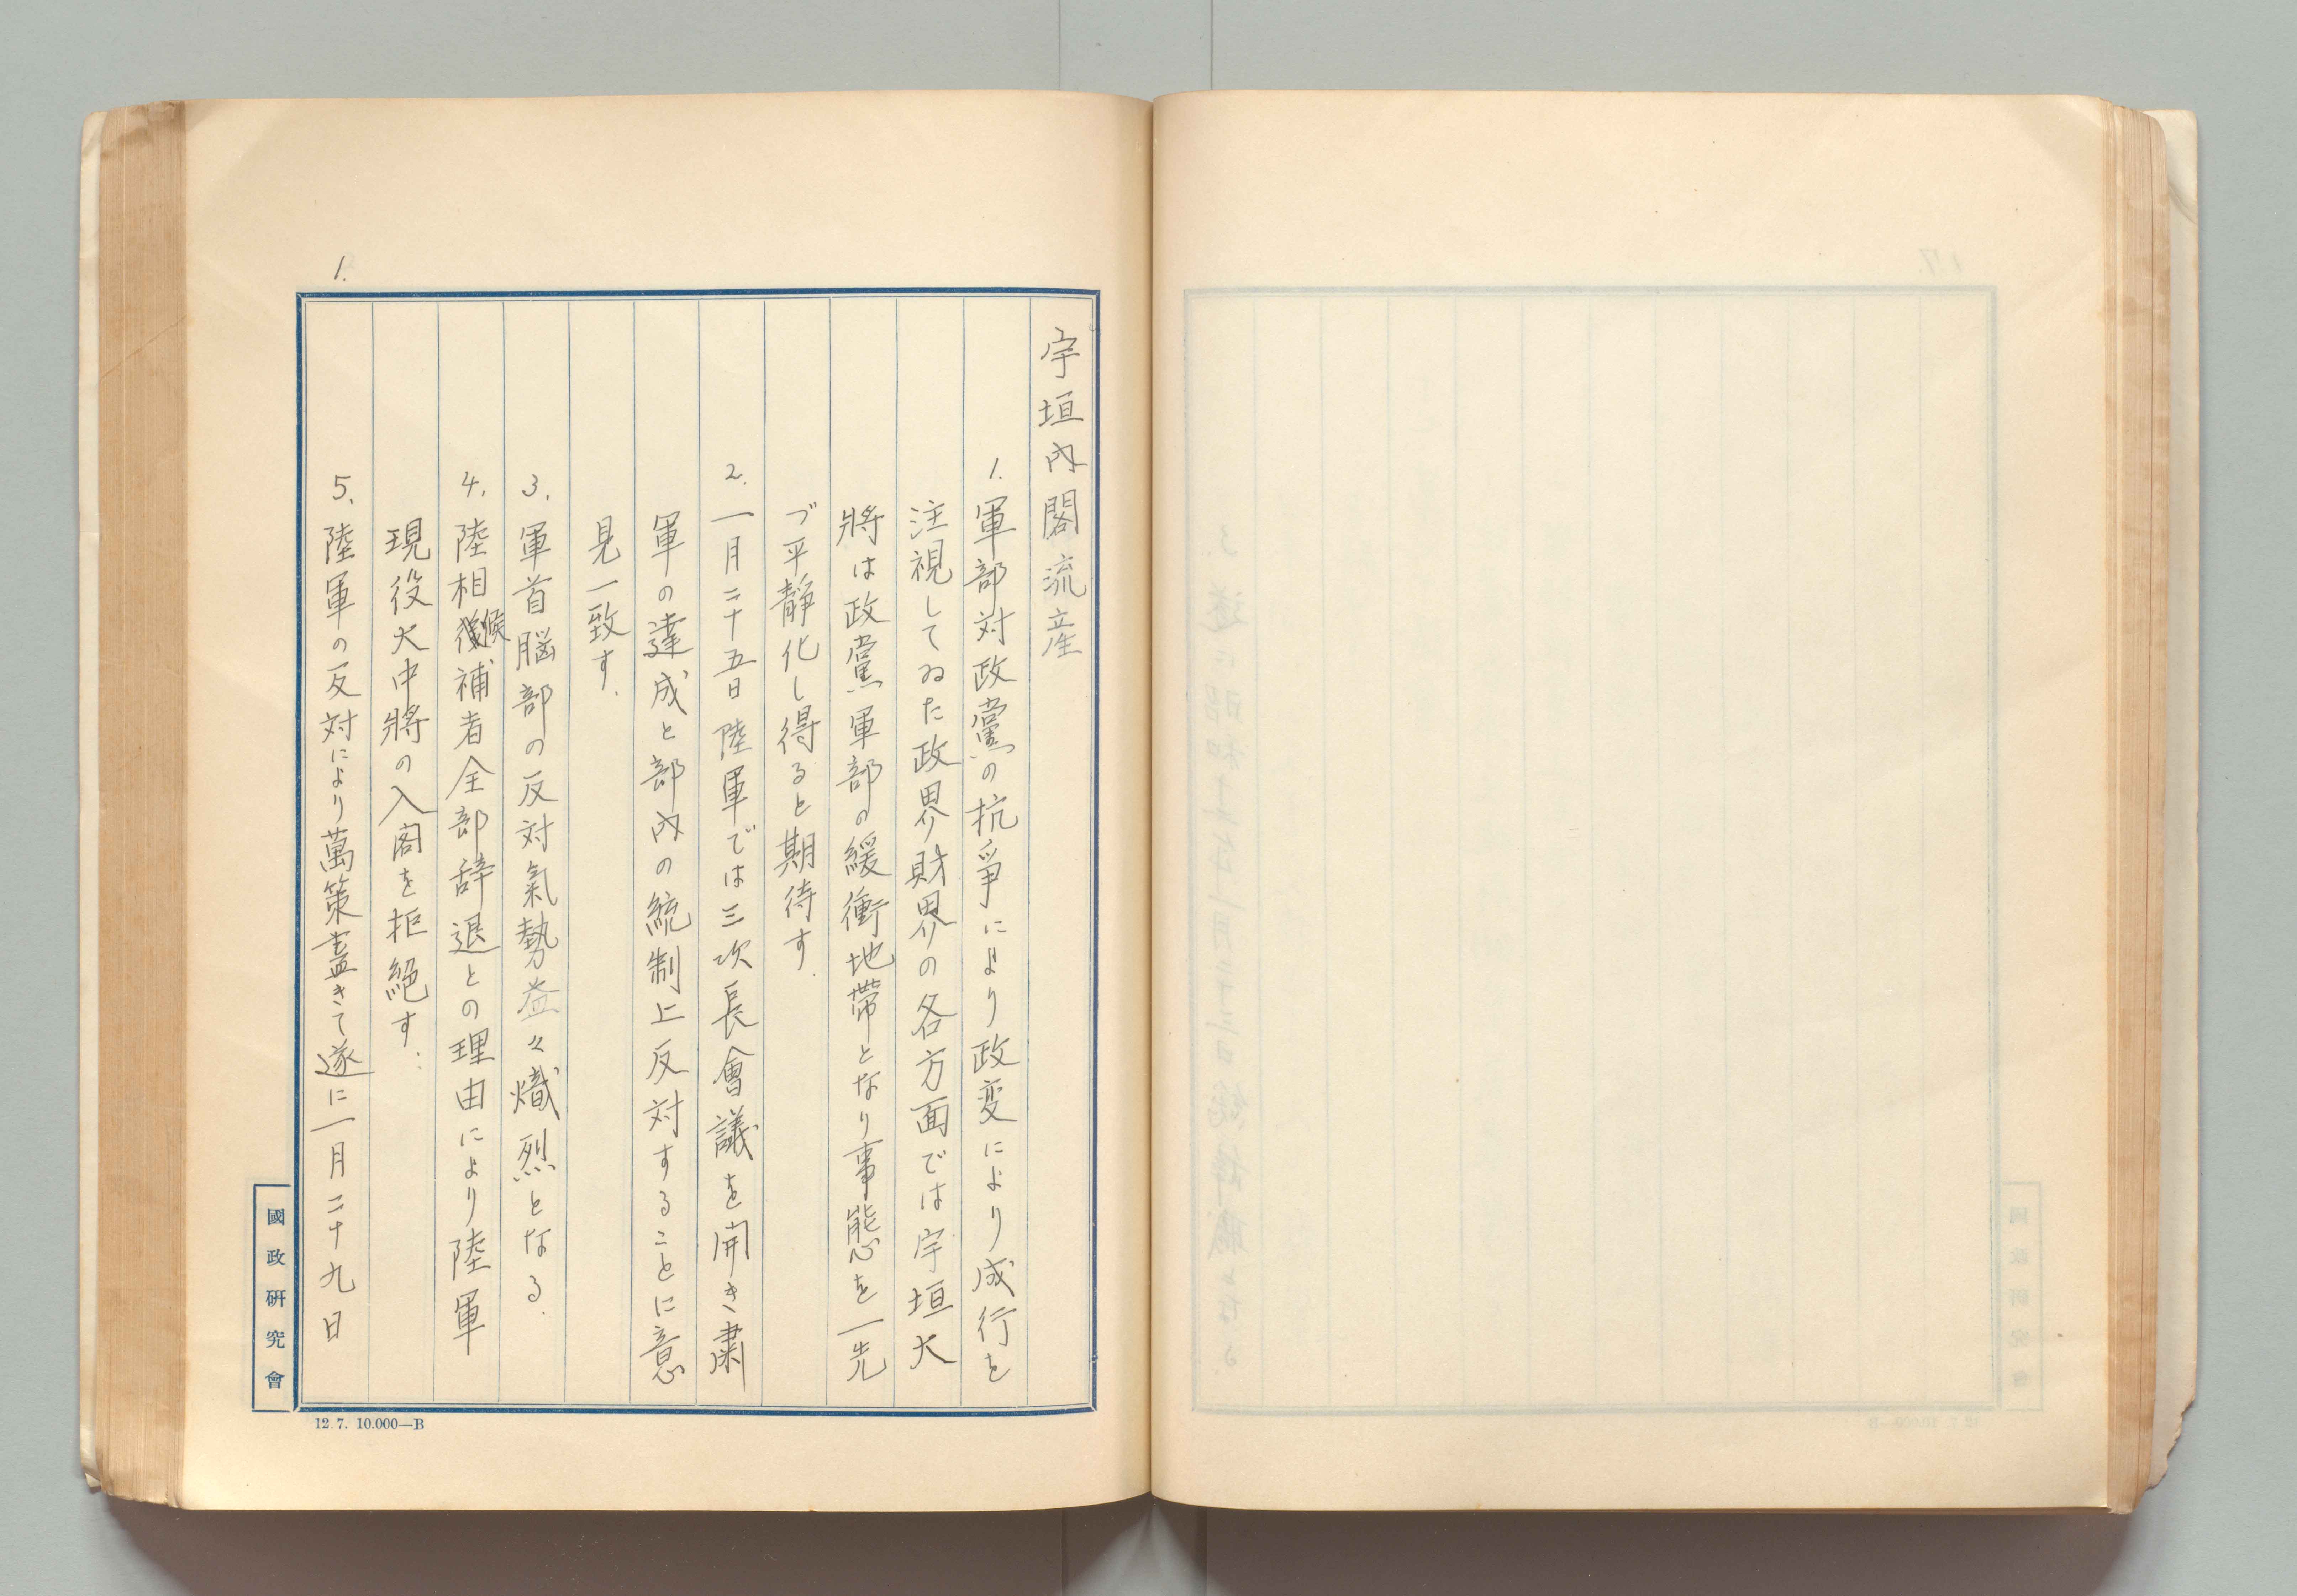 1.
宇垣内閣流産
1. 軍部対政黨の抗爭により政変により成行を
注視してゐた政界財界の各方面では宇垣大
將は政黨軍部の緩衝地帶となり事態を一先
づ平靜化し得ると期待す.
2. 一月二十五日陸軍では三次長會議を開き肅
軍の達成と部内の統制上反対することに意
見一致す.
3. 軍首脳部の反対氣勢益々熾烈となる.
4. 陸相候補者全部辞退との理由により陸軍
現役大中將の入閣を拒絕す.
5. 陸軍の反対により萬策盡きて遂に一月二十九日
國政研究會
12.7. 10.000—B